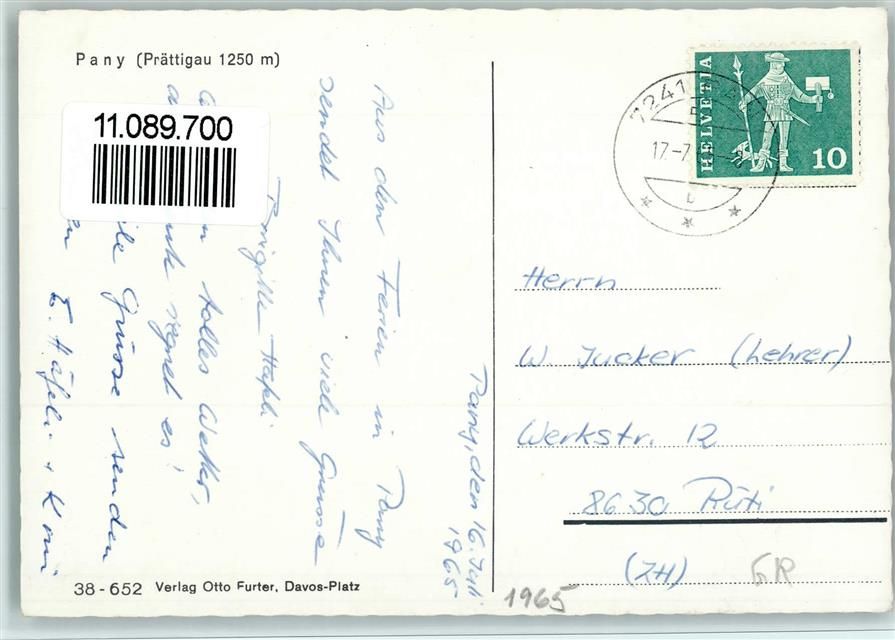 Pany (Prättigau 1250 m)
11.089.700
HELVETIA
10
7241
17.-7.
Pany, den 16. Juli
1965
Aus den Ferien in Pany
sendet Ihnen viele Grüsse
Brigitte Häfeli
tolles Wetter,
regnet es!
Grüsse senden
E. Häfeli +
Herrn
W. Jucker (Lehrer)
Werkstr. 12
8630 Rüti
(ZH) GR
1965
38-652 Verlag Otto Furter, Davos-Platz